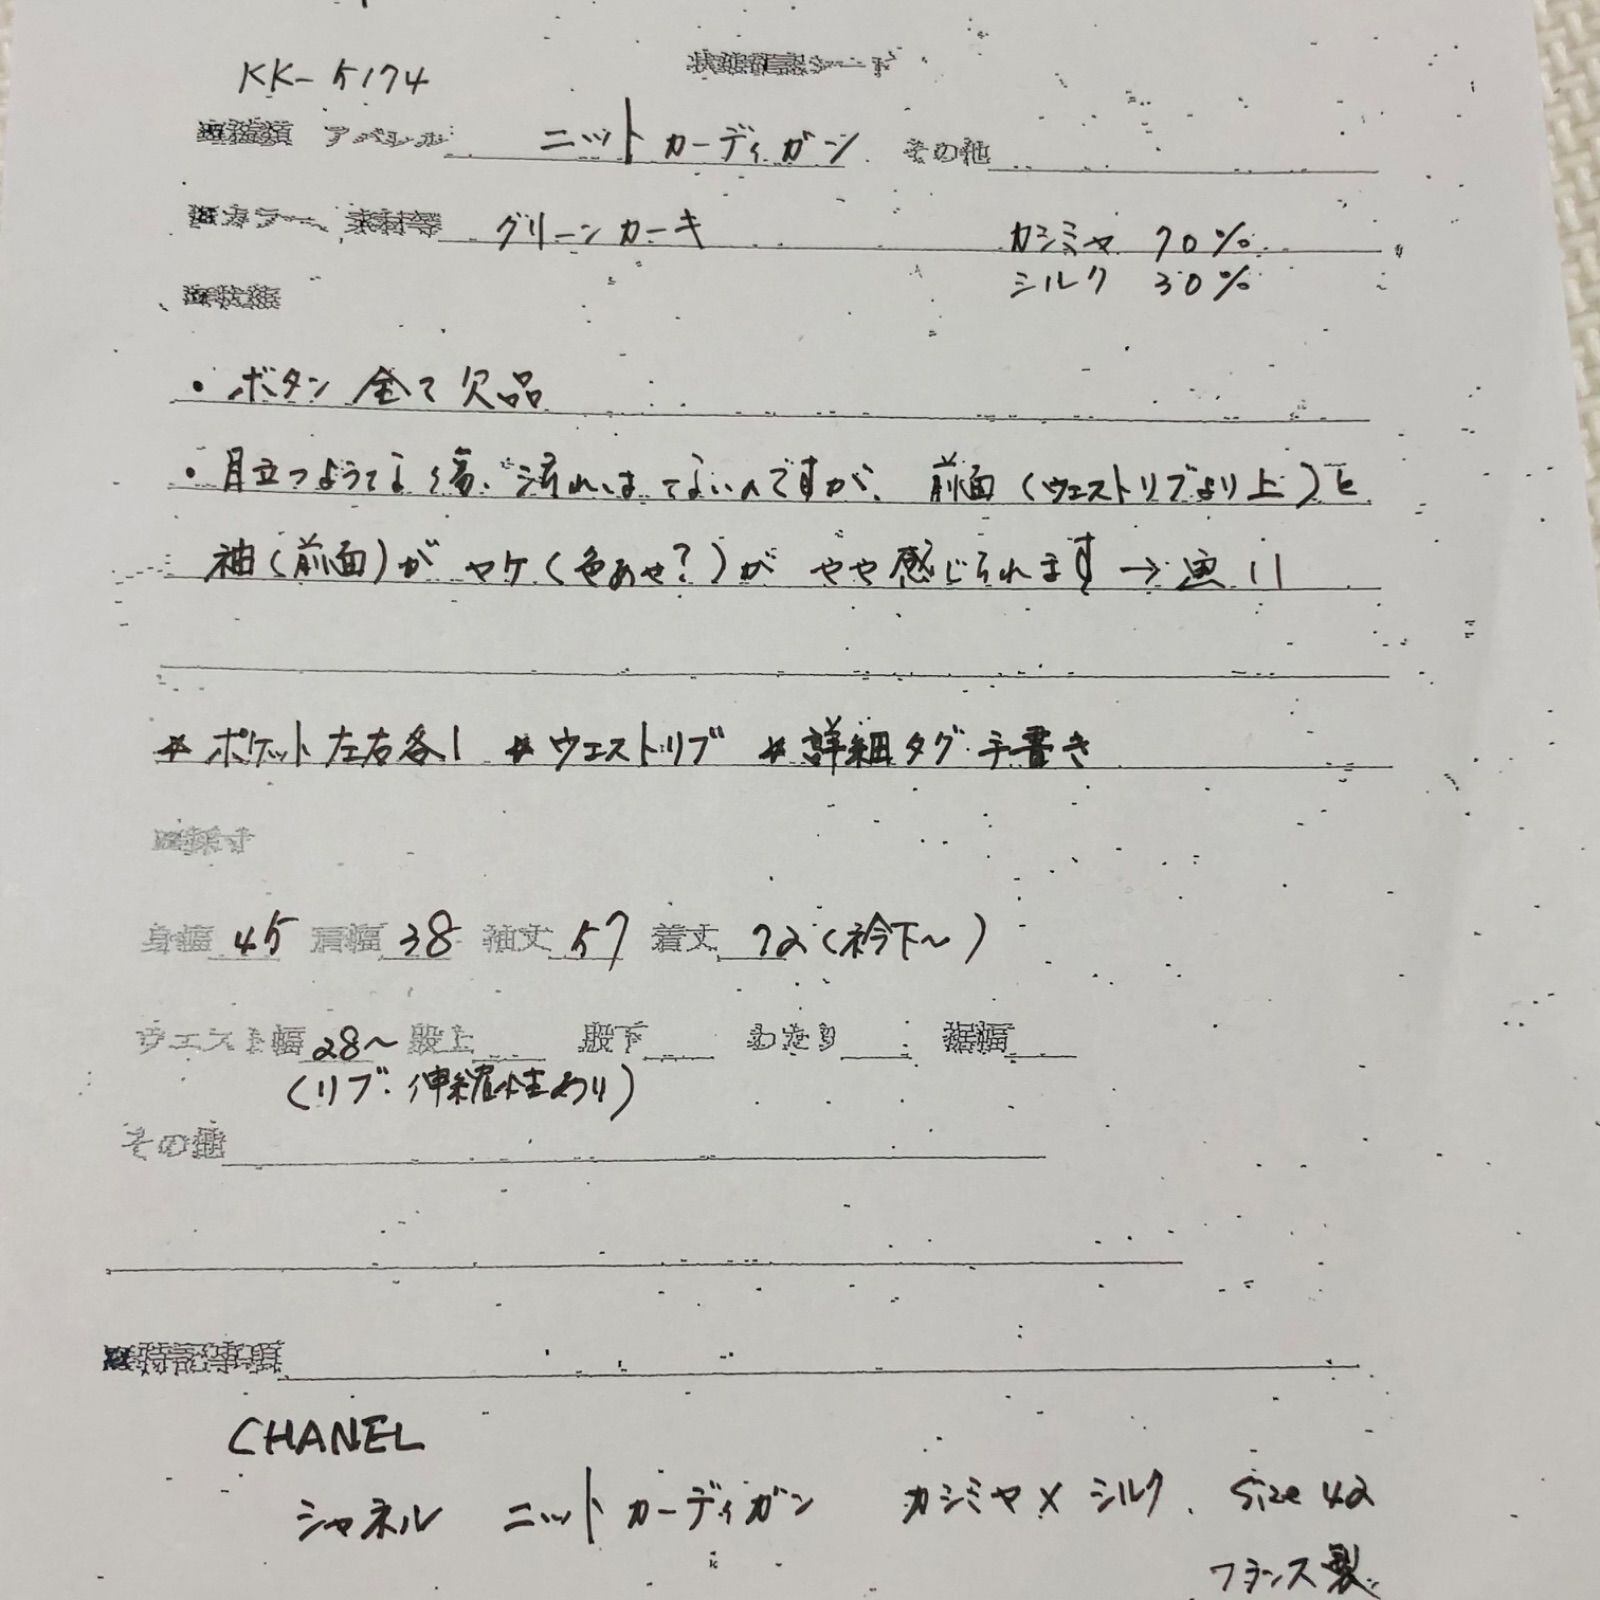 KK-5174 状態確認シート
■種類 アパレル ニットカーディガン その他
■カラー、素材等 グリーンカーキ カシミヤ 70%
シルク 30%
■状態
・ボタン全て欠品
・目立つような傷、汚れはないのですが、前面(ウエストリブより上)と
袖(前面)がヤケ(色あせ?)がやや感じられます→
*ポケット左右各1 *ウエストリブ *詳細タグ手書き
■採寸
身幅 45 肩幅 38 袖丈 57 着丈 72(衿下~)
ウエスト幅 28~ 股上 股下 わたり 裾幅
(リブ・伸縮性あり)
その他
■特記事項
CHANEL
シャネル ニットカーディガン カシミヤ×シルク、size 42
フランス製